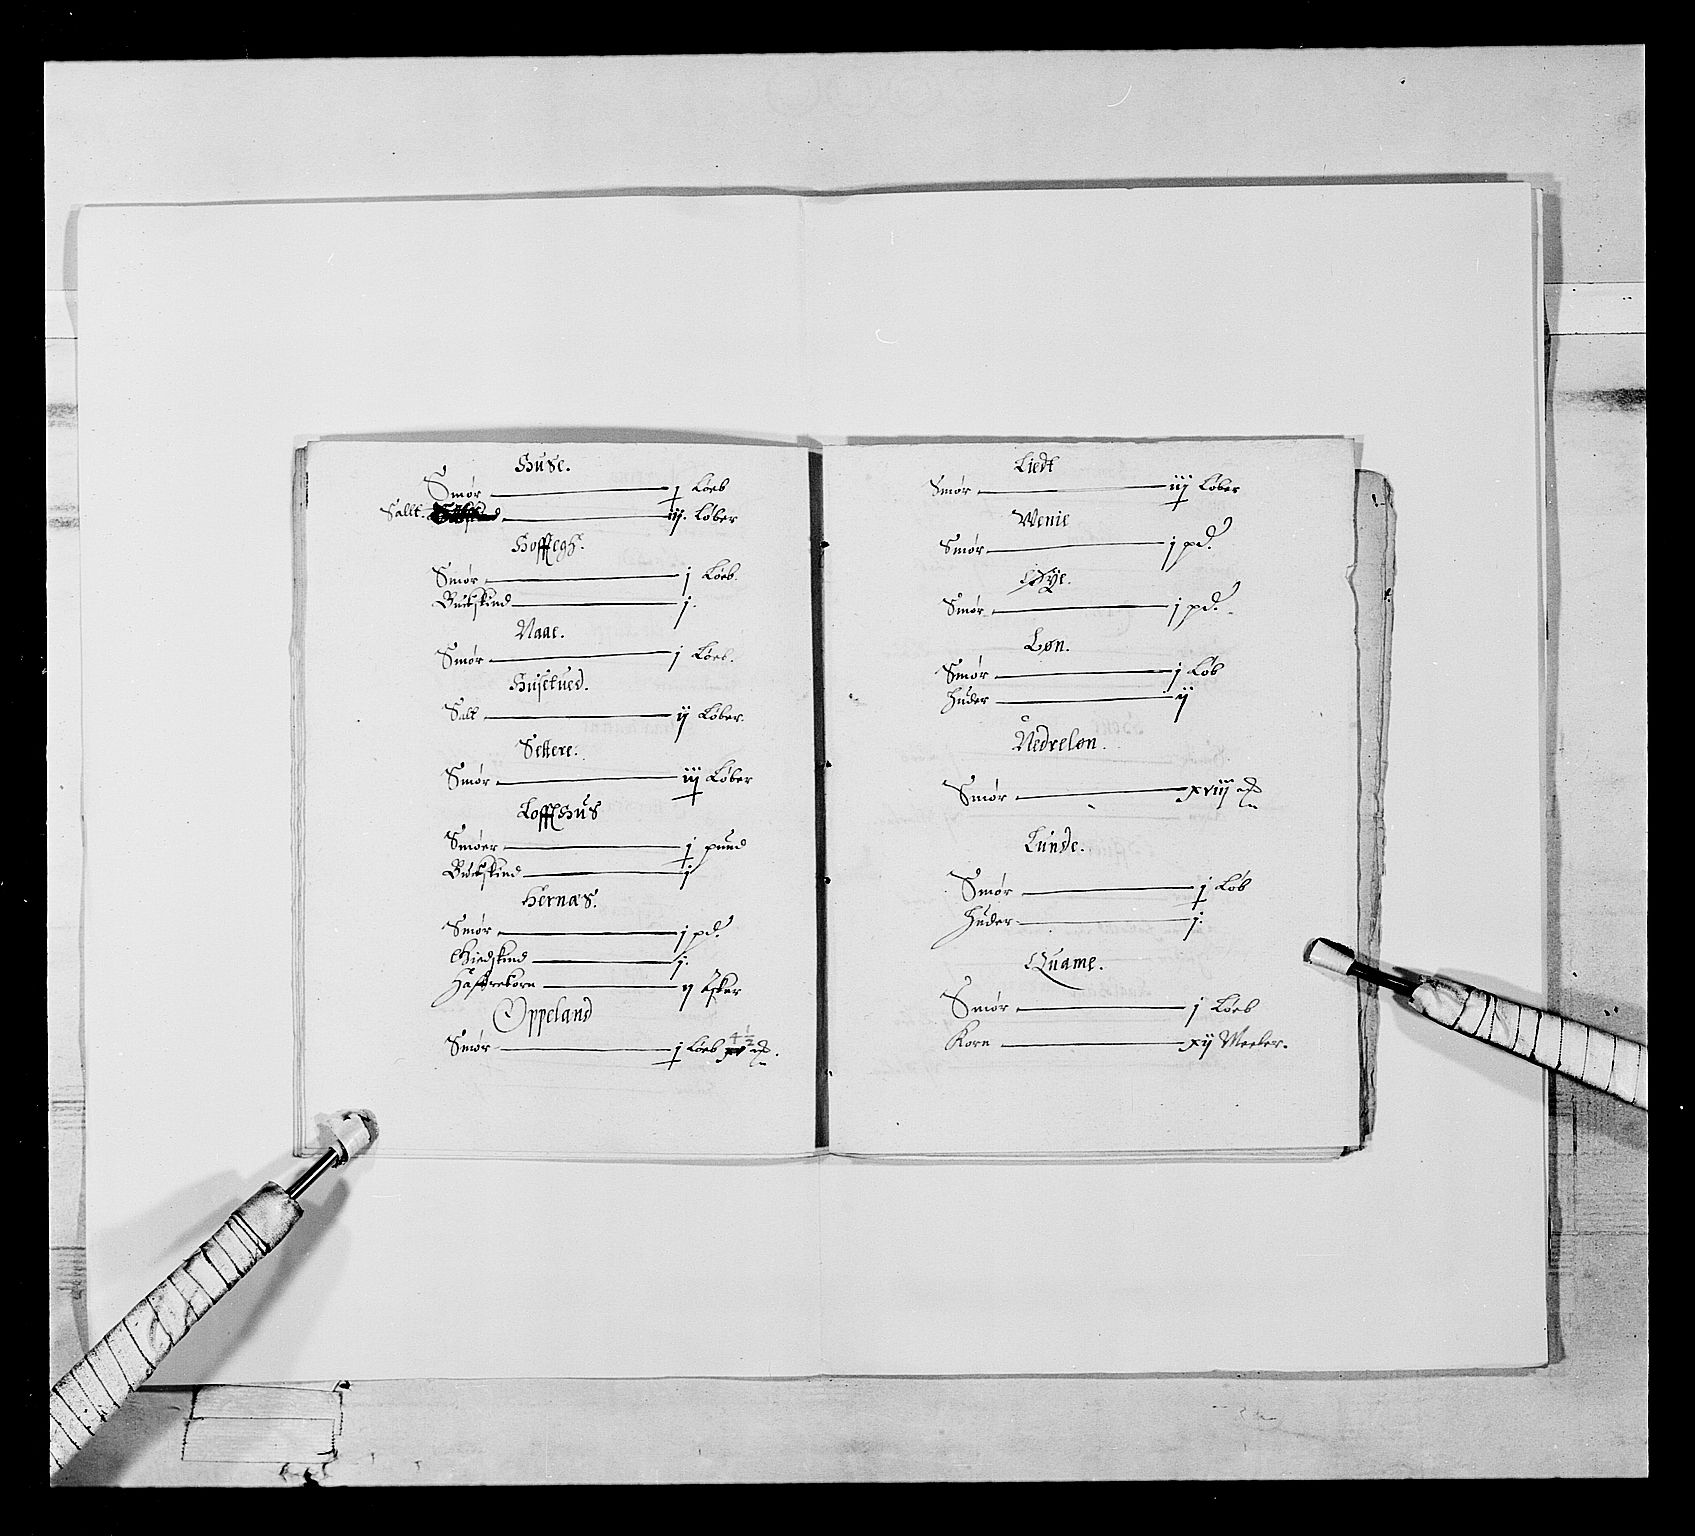 Huse.
Smør — j Løeb
Sallt. — iij. Løber
Hofflegh.
Smør — j Løeb.
Buckskind — j.
Naae.
Smør — j Løeb.
Husetued.
Salt — ij Løber.
Settere.
Smør — iij Løber
Loffthus
Smøer — j pund
Buckskind — j
Hernæs.
Smør — j pd.
Giedskind — j.
Haffrekorn — ij Esker
Oppeland
Smør — j Løeb 4½
Liedt
Smør — iij Løber
Wenie
Smør — j pd.
Øye.
Smør — j pd.
Løn.
Smør — j Løb
Huder — ij
Nedreløn.
Smør — xviij
Lunde.
Smør — j Løb
Huder — j.
Quame.
Smør — j Løeb
Korn — xij Meeler.